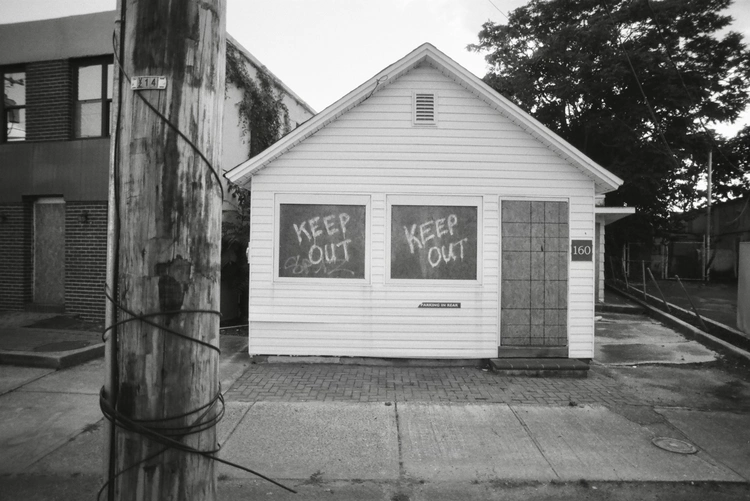 114
KEEP
OUT
KEEP
OUT
160
PARKING IN REAR